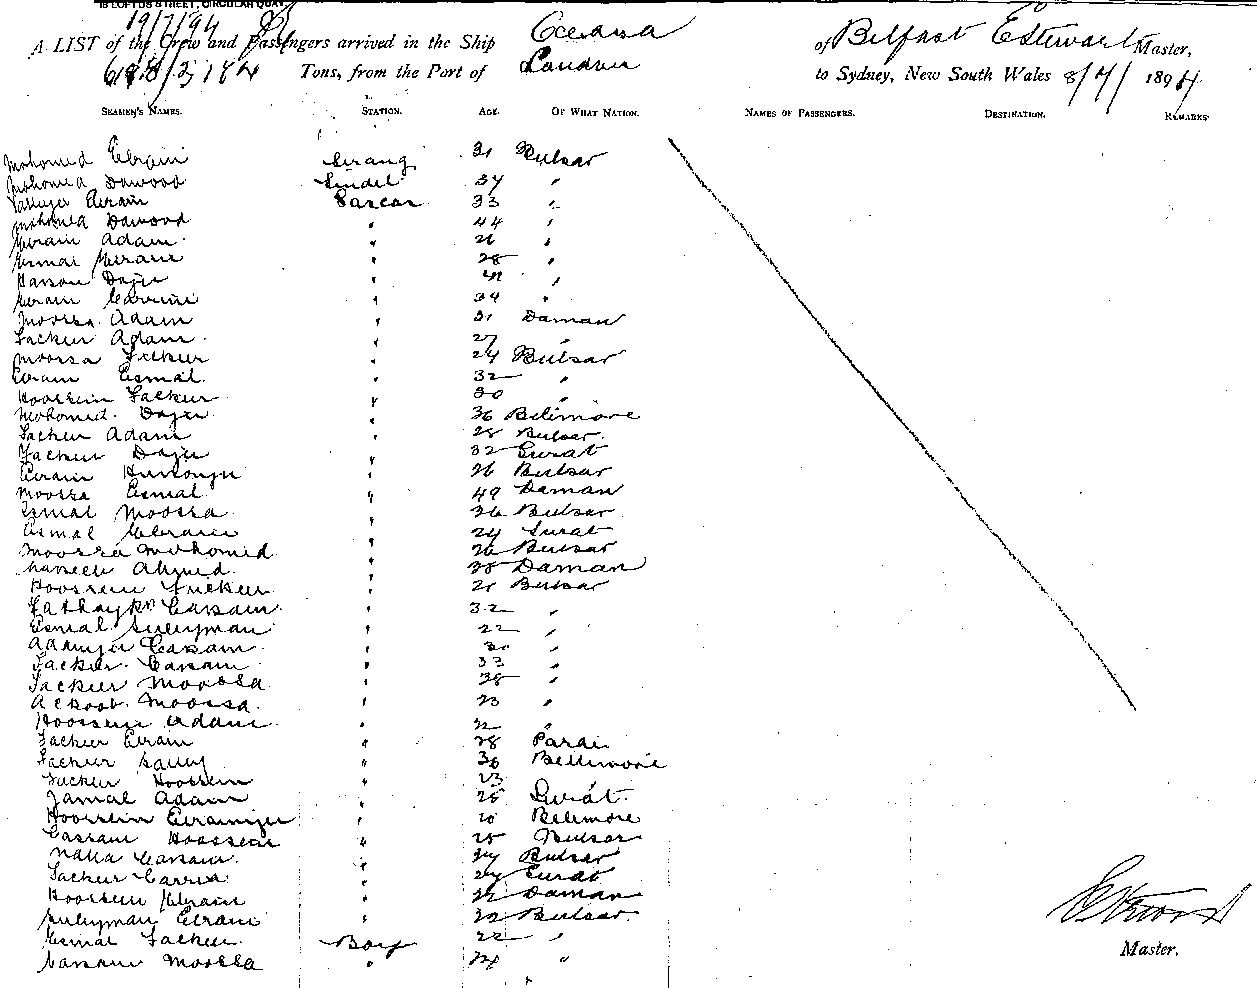 18 LOFTUS STREET, CIRCULAR QUAY
19/7/94
A LIST of the Crew and Passengers arrived in the Ship Oceana of Belfast E Stewart Master,
Tons, from the Port of London to Sydney, New South Wales 8/7/ 1894
SEAMEN'S NAMES. STATION. AGE. OF WHAT NATION. NAMES OF PASSENGERS. DESTINATION. REMARKS
Mohomed Ebrain Serang 31 Bulsar
Mohomed Dawood Tindel 34 "
Ebrain Lascar 33 "
Mohomed Dawood " 44 "
Ebrain Adam " "
Esmal Ebrain " 28 "
Hassan Dajee " "
Ebrain " 34 "
Moossa Adam " 31 Daman
Jackur Adam " 27 "
Moossa Jackur " 24 Bulsar
Ebrain Esmal " 32 "
Hoossein Jackur " 30 "
Mohomed Dajee " 36 Belimore
Jackur Adam " 28 Bulsar
Jackur Dajee " 32 Surat
Ebrain " 26 Bulsar
Moossa Esmal " 49 Daman
Esmal Moossa " 26 Bulsar
Esmal Ebrain " 24 Surat
Moossa Mohomed " 26 Bulsar
Ahmed " 38 Daman
Hoossein Jackur " 21 Bulsar
Cassam " 32 "
Esmal Suleyman " 22 "
Adamjee Cassam " 30 "
Jackur Cassam " 33 "
Jackur Moossa " 38 "
Moossa " 23 "
Hoossein Adam " 22 "
Jackur Ebrain " 28 Pardi
Jackur " 30 Bellimore
Jackur Hoossein " 23
Jamal Adam " 25 Surat
Hoossein Ebramjee " 20 Belimore
Cassam Hoossein " 25 Bulsar
Cassam " 24 Bulsar
Jackur " 24 Surat
Hoossein Ebrain " 22 Daman
Suleyman Ebrain " 22 Bulsar
Esmal Jackur Boy 22 "
Cassam Moossa " 24 "
E Stewart
Master,